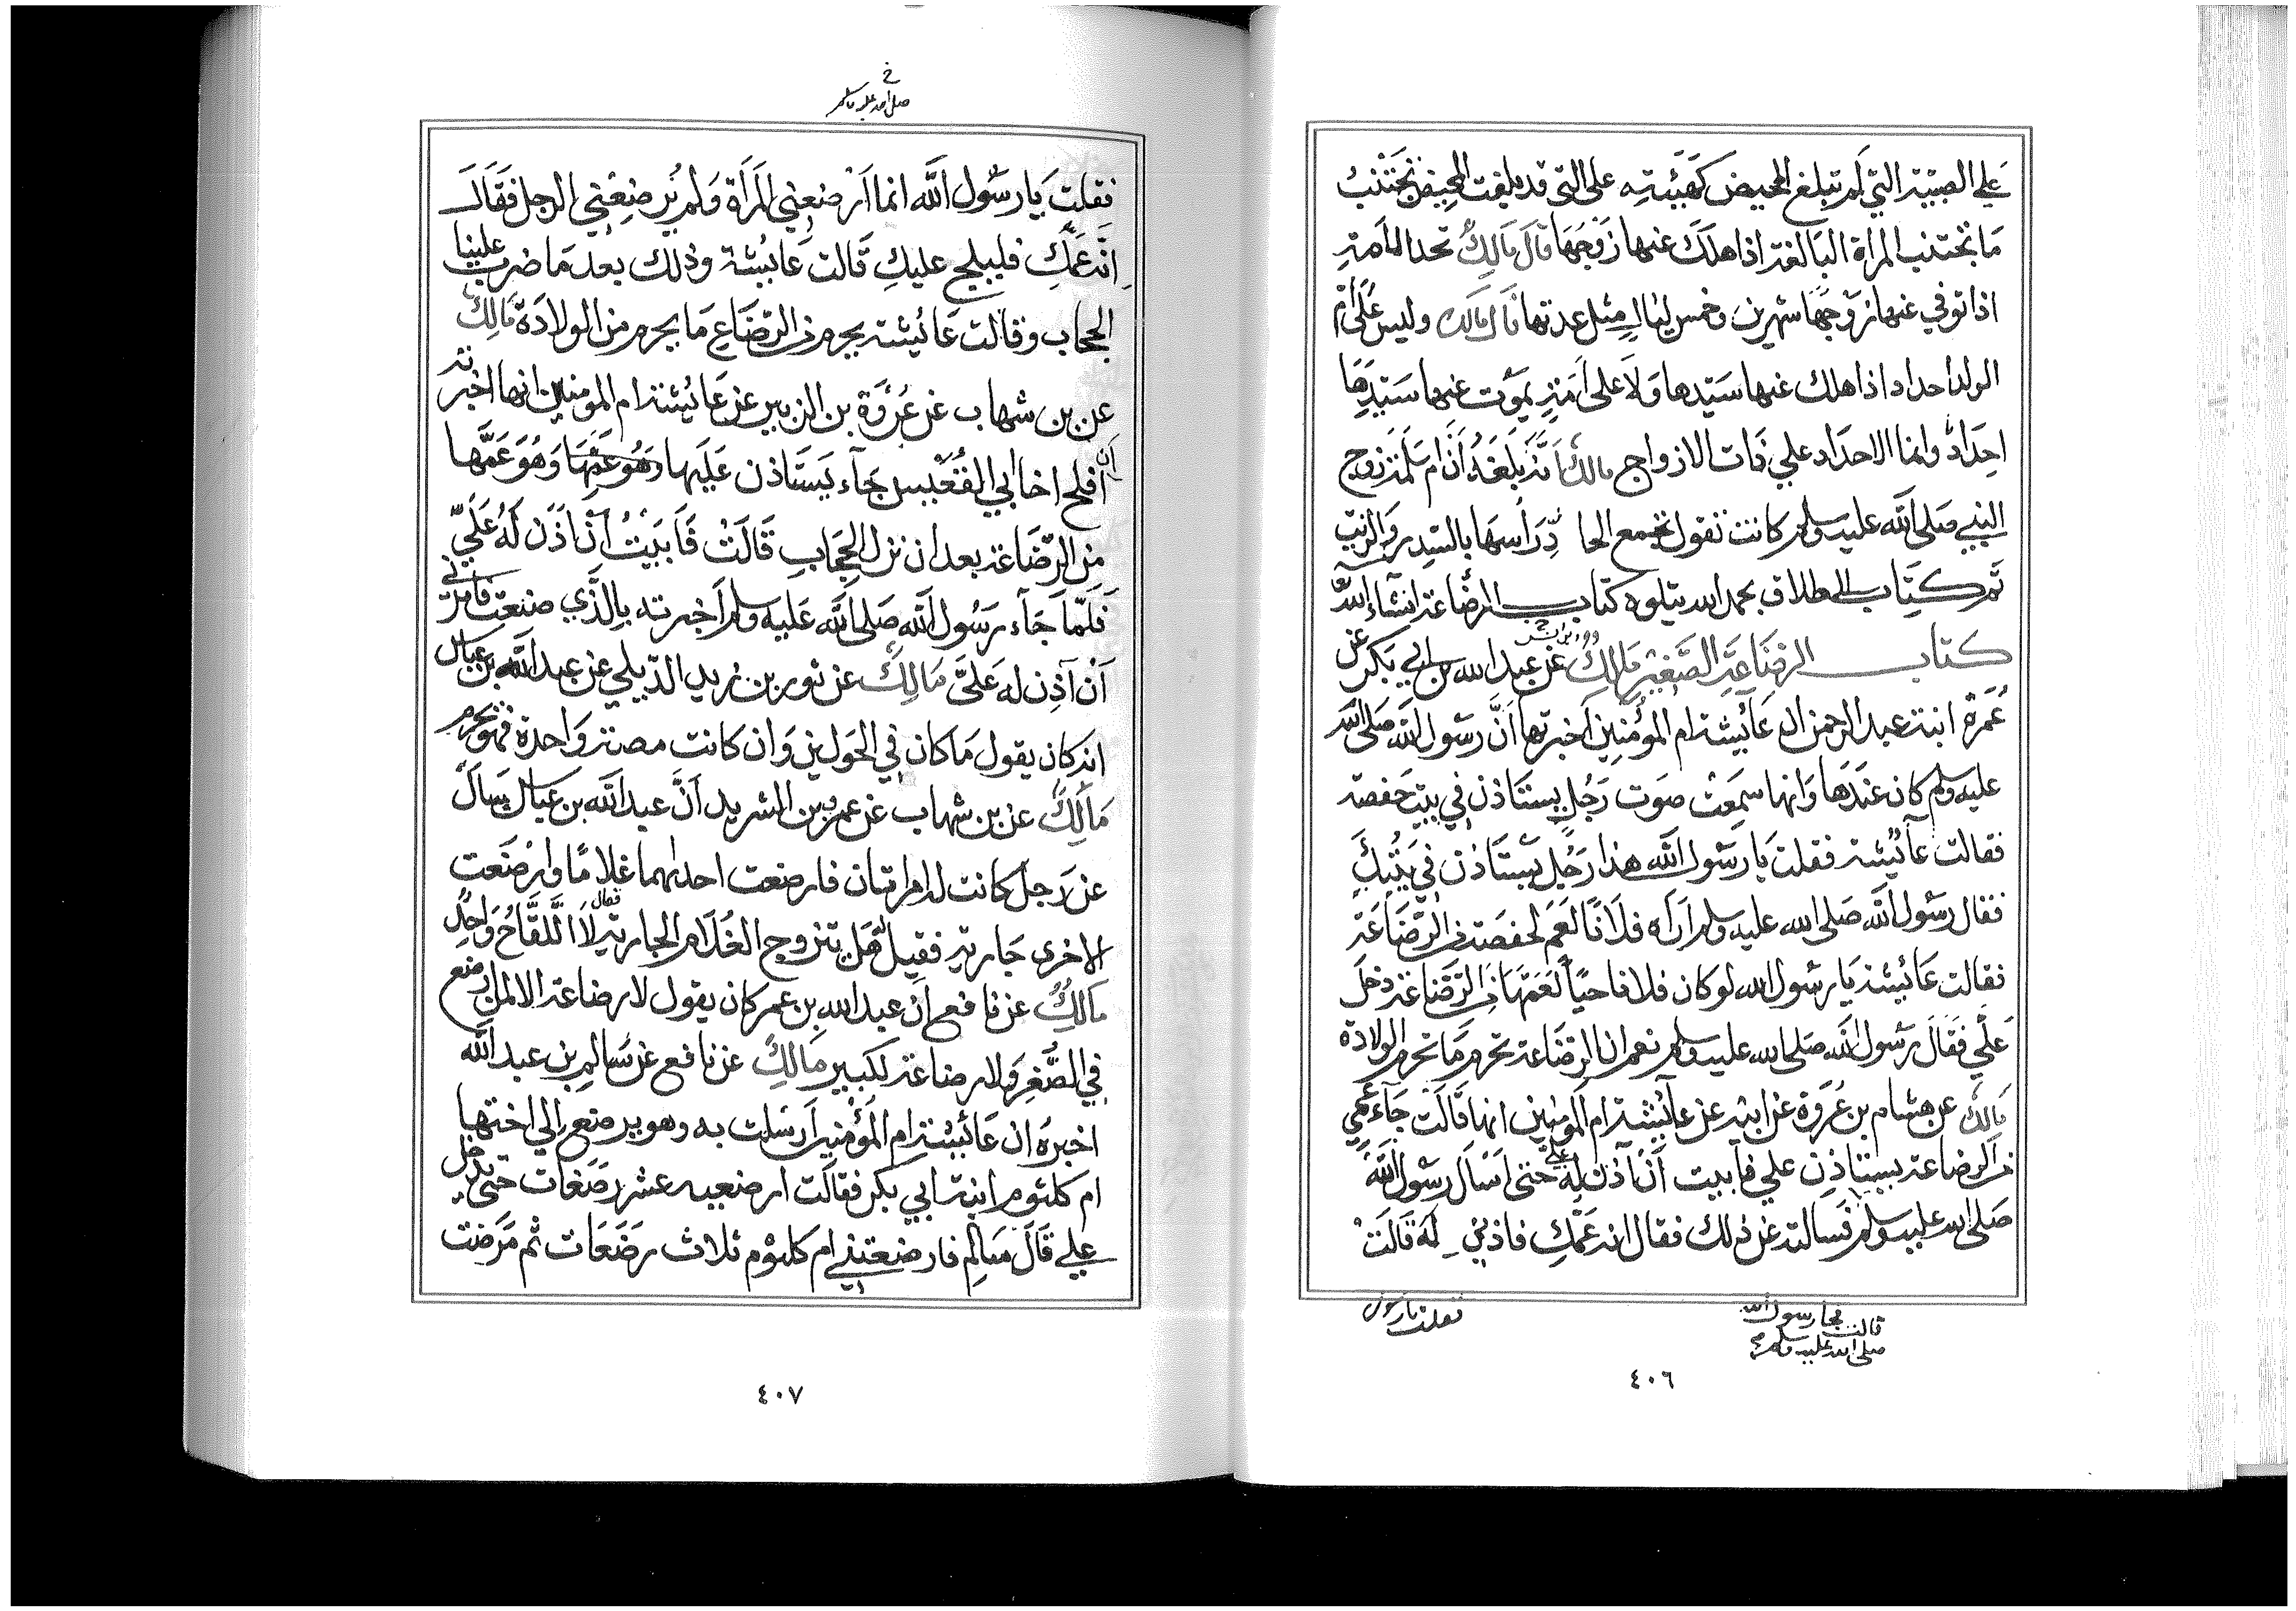 على الصبية التي لم تبلغ المحيض كهيئته على التي قد بلغت المحيض تجتنب
ما تجتنب المرأة البالغة اذا هلك عنها زوجها قال مالك تحد الامة
اذا توفي عنها زوجها شهرين وخمس ليال مثل عدتها قال مالك وليس على أم
الولد احداد اذا هلك عنها سيدها ولا على امة يموت عنها سيدها
احداد وانما الاحداد علي ذات الازواج مالك انه بلغه أن ام سلمة زوج
النبي صلى الله عليه وسلم كانت تقول تجمع الحاد رأسها بالسدر والزيت
تم كتاب الطلاق بحمد الله يتلوه كتاب الرضاعة ان شاء الله
كتاب الرضاعة الصغير مالك عن عبد الله بن ابي بكر عن
عمرة ابنة عبد الرحمن ان عائشة ام المؤمنين أخبرتها أن رسول الله صلى الله
عليه وسلم كان عندها وانها سمعت صوت رجل يستاذن في بيت حفصة
فقالت عائشة فقلت يا رسول الله هذا رجل يستاذن في بيتك
فقال رسول الله صلى الله عليه وسلم أراه فلانا لعم لحفصة من الرضاعة
فقالت عائشة يا رسول الله لو كان فلانا حيا لعمها من الرضاعة دخل
علي فقال رسول الله صلى الله عليه وسلم نعم ان الرضاعة تحرم ما تحرم الولادة
مالك عن هشام بن عروة عن ابيه عن عائشة ام المومنين انها قالت جاء عمي
من الرضاعة يستاذن علي فابيت أن آذن له علي حتى اسأل رسول الله
صلى الله عليه وسلم فسالته عن ذلك فقال انه عمك فاذني له قالت
فقلت يا رسول
قالت فجا رسول الله
صلى الله عليه وسلم
٤٠٦
خ
صلى الله عليه وسلم
فقلت يا رسول الله انما ارضعتني المرأة ولم يرضعني الرجل فقال
انه عمك فليلج عليك قالت عائشة وذلك بعد ما ضرب علينا
الحجاب وقالت عائشة يحرم من الرضاع ما يحرم من الولادة مالك
عن بن شهاب عن عروة بن الزبير عن عائشة ام المومنين انها اخبرته
أن أفلح اخا ابي القعيس جاء يستاذن عليها وهو عمها وهو عمها
من الرضاعة بعد ان نزل الحجاب قالت فابيت أن آذن له علي
فلما جاء رسول الله صلى الله عليه وسلم اخبرته بالذي صنعت فامرني
أن آذن له علي مالك عن ثور بن زيد الديلي عن عبد الله بن عباس
انه كان يقول ما كان في الحولين وان كانت مصة واحدة فهو يحرم
مالك عن بن شهاب عن عمرو بن الشريد أن عبد الله بن عباس سأل
عن رجل كانت له امراتان فارضعت احداهما غلاما وارضعت
الاخرى جارية فقيل له هل يتزوج الغلام الجارية فقال لا اللقاح واحد
مالك عن نافع أن عبد الله بن عمر كان يقول لا رضاعة الا لمن ارضع
في الصغر ولا رضاعة لكبير مالك عن نافع عن سالم بن عبد الله
اخبره ان عائشة ام المؤمنين ارسلت به وهو يرضع الي اختها
ام كلثوم ابنة ابي بكر فقالت ارضعيه عشر رضعات حتى يدخل
علي قال سالم فارضعتني ام كلثوم ثلاث رضعات ثم مرضت
٤٠٧